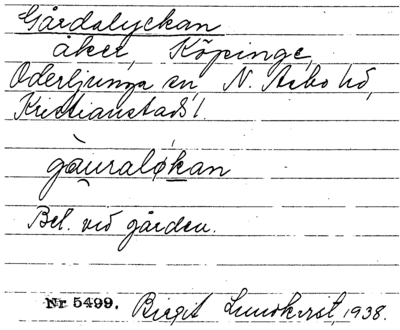 Gårdalyckan
åker, Köpinge,
Oderljunga sn, N. Åsbo hd,
Kristianstads l.
gàuraløkan
Bel. vid gården.
Nr 5499. Birgit Lundkvist, 1938.